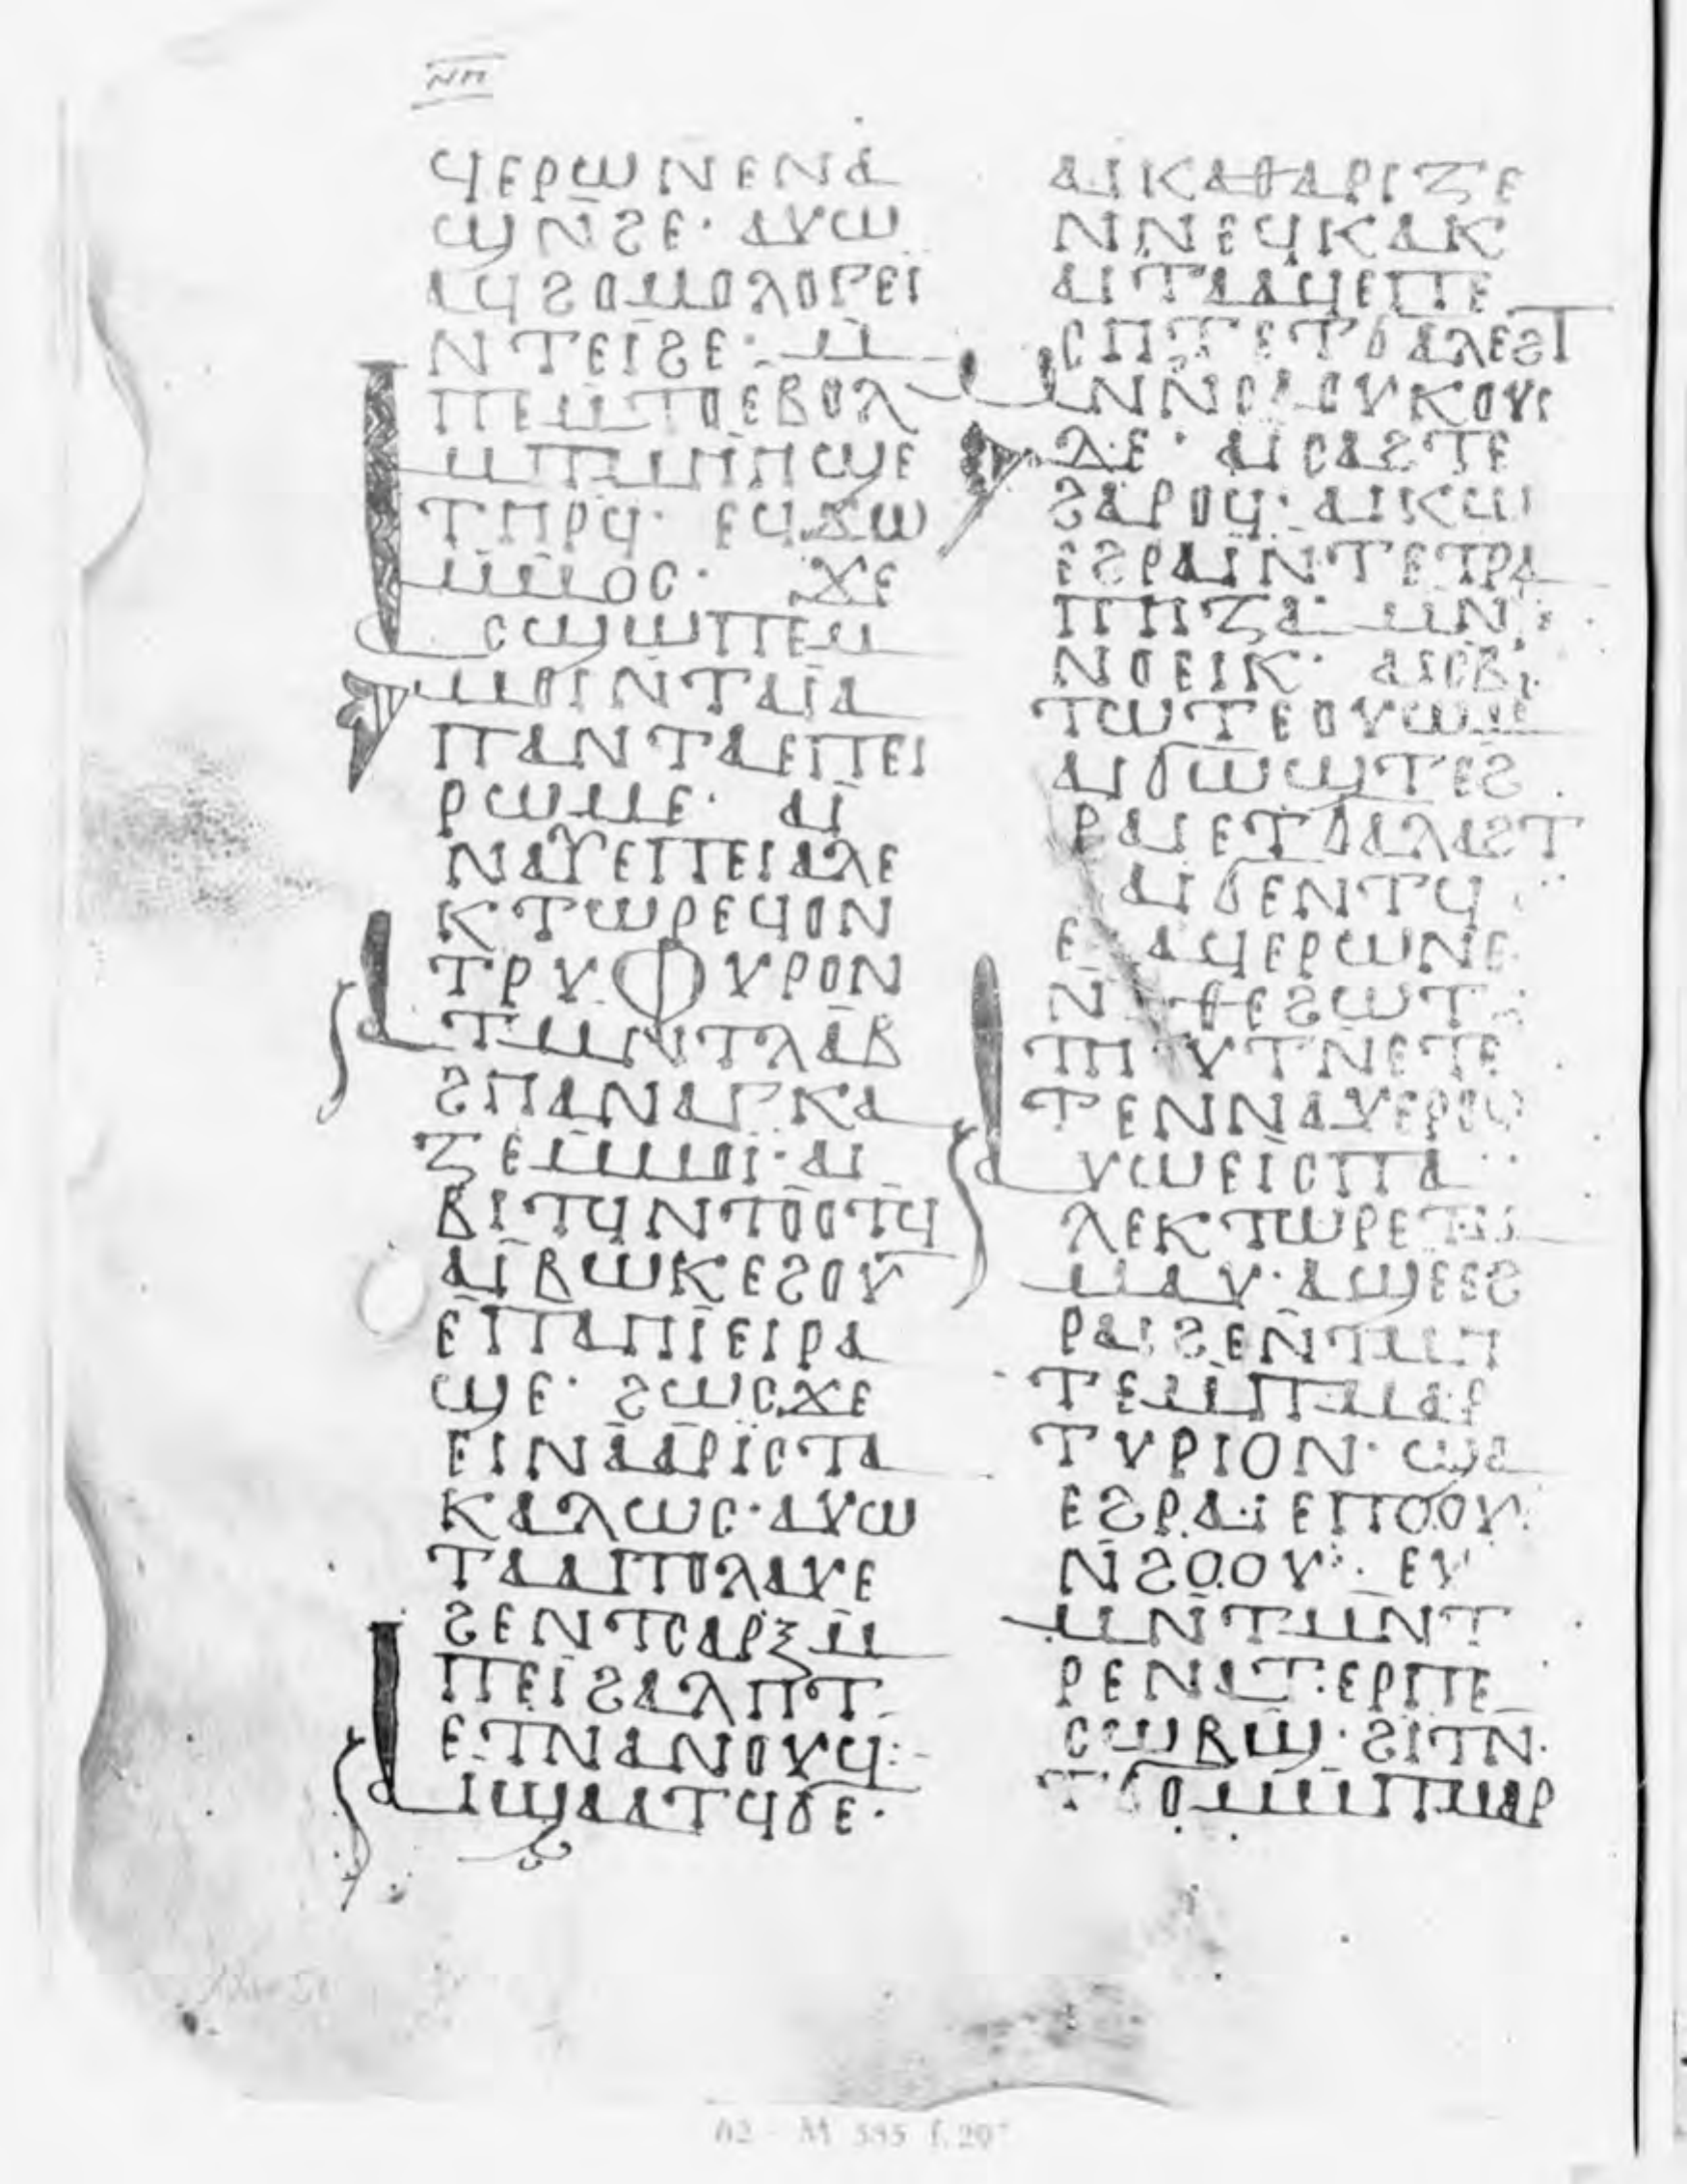 ⲛⲏ
ϥⲉⲣⲱⲛⲉ ⲛⲁ
ϣ ⲛ̄ϩⲉ· ⲁⲩⲱ
ⲁϥϩⲟⲙⲟⲗⲟⲅⲉⲓ
ⲛ̄ⲧⲉⲓϩⲉ· ⲙ̄
ⲡⲉⲙⲧⲟ ⲉⲃⲟⲗ
ⲙ̄ⲡⲙⲏⲏϣⲉ
ⲧⲏⲣϥ· ⲉϥϫⲱ
ⲙ̄ⲙⲟⲥ· ϫⲉ
ⲁⲥϣⲱⲡⲉ ⲙ̄
ⲙⲟⲓ ⲛ̄ⲧⲁⲓⲁ
ⲡⲁⲛⲧⲁ ⲉⲡⲉⲓ
ⲣⲱⲙⲉ· ⲁⲓ
ⲛⲁⲩ ⲉⲡⲉⲓⲁⲗⲉ
ⲕⲧⲱⲣ ⲉϥⲟⲛ
ⲧⲣⲩⲫⲩⲣⲟⲛ
ⲁⲧⲙⲛ̄ⲧⲗⲁⲃ
ϩⲏⲧ ⲁⲛⲁⲅⲕⲁ
ⲍⲉ ⲙ̄ⲙⲟⲓ· ⲁⲓ
ϥⲓⲧϥ ⲛ̄ⲧⲟⲟⲧϥ
ⲁⲓⲃⲱⲕ ⲉϩⲟⲩ
ⲉ ⲡⲁⲏⲓ ⲉⲓⲣⲁ
ϣⲉ· ϩⲱⲥ ϫⲉ
ⲉⲓⲛⲁⲁⲣⲓⲥⲧⲁ
ⲕⲁⲗⲱⲥ· ⲁⲩⲱ
ⲧⲁⲁⲡⲟⲗⲁⲩⲉ
ϩⲉⲛ ⲧⲥⲁⲣⲝ ⲙ̄
ⲡⲉⲓϩⲁⲗⲏⲧ
ⲉⲧⲛⲁⲛⲟⲩϥ·
ⲁⲓϣⲁⲁⲧϥ ϭⲉ·
ⲁⲓⲕⲁⲑⲁⲣⲓⲍⲉ
ⲛ̄ⲛⲉϥⲕⲁⲕ
ⲁⲓⲧⲁⲁϥ ⲉⲡⲉ
ⲥⲏⲧ ⲉⲧϭⲁⲗⲉϩⲧ
ⲙⲛ̄ⲛ̄ⲥⲁ ⲟⲩⲕⲟⲩⲓ
ⲇⲉ· ⲁⲓⲥⲁϩⲧⲉ
ϩⲁⲣⲟϥ· ⲁⲓⲕⲱ
ⲉϩⲣⲁⲓ ⲛ̄ⲧⲉⲧⲣⲁ
ⲡⲏⲍⲁ ⲙⲛ̄
ⲛⲟⲉⲓⲕ· ⲁⲓⲥⲃ
ⲧⲱⲧ ⲉⲟⲩⲱⲙ
ⲁⲓϭⲱϣⲧ ⲉϩ
ⲣⲁⲓ ⲉⲧϭⲁⲗⲁϩⲧ
ⲁⲓϭⲉⲛⲧϥ
ⲉⲁϥⲉⲣⲱⲛⲉ
ⲛ̄ⲑⲉ ϩⲱⲧ
ⲧⲏⲩⲧⲛ̄ ⲉⲧⲉ
ⲧⲉⲛⲛⲁⲩ ⲉⲣⲟϥ
ⲁⲩⲱ ⲉⲓⲥ ⲡⲁ
ⲗⲉⲕⲧⲱⲣ ⲉⲧⲙ̄
ⲙⲁⲩ· ⲁϣⲉ ⲉϩ
ⲣⲁⲓ ϩⲉⲛ ⲧⲙⲏ
ⲧⲉ ⲙ̄ⲡⲙⲁⲣ
ⲧⲩⲣⲓⲟⲛ· ϣⲁ
ⲉϩⲣⲁⲓ ⲉⲡⲟⲟⲩ
ⲛ̄ϩⲟⲟⲩ· ⲉⲩ
ⲙⲛ̄ⲧⲙⲛ̄ⲧ
ⲣⲉ ⲛⲁⲧⲉⲣⲡⲉ
ⲥⲱⲃϣ· ϩⲓⲧⲛ
ⲧϭⲟⲙ ⲙ̄ⲡⲙⲁⲣ